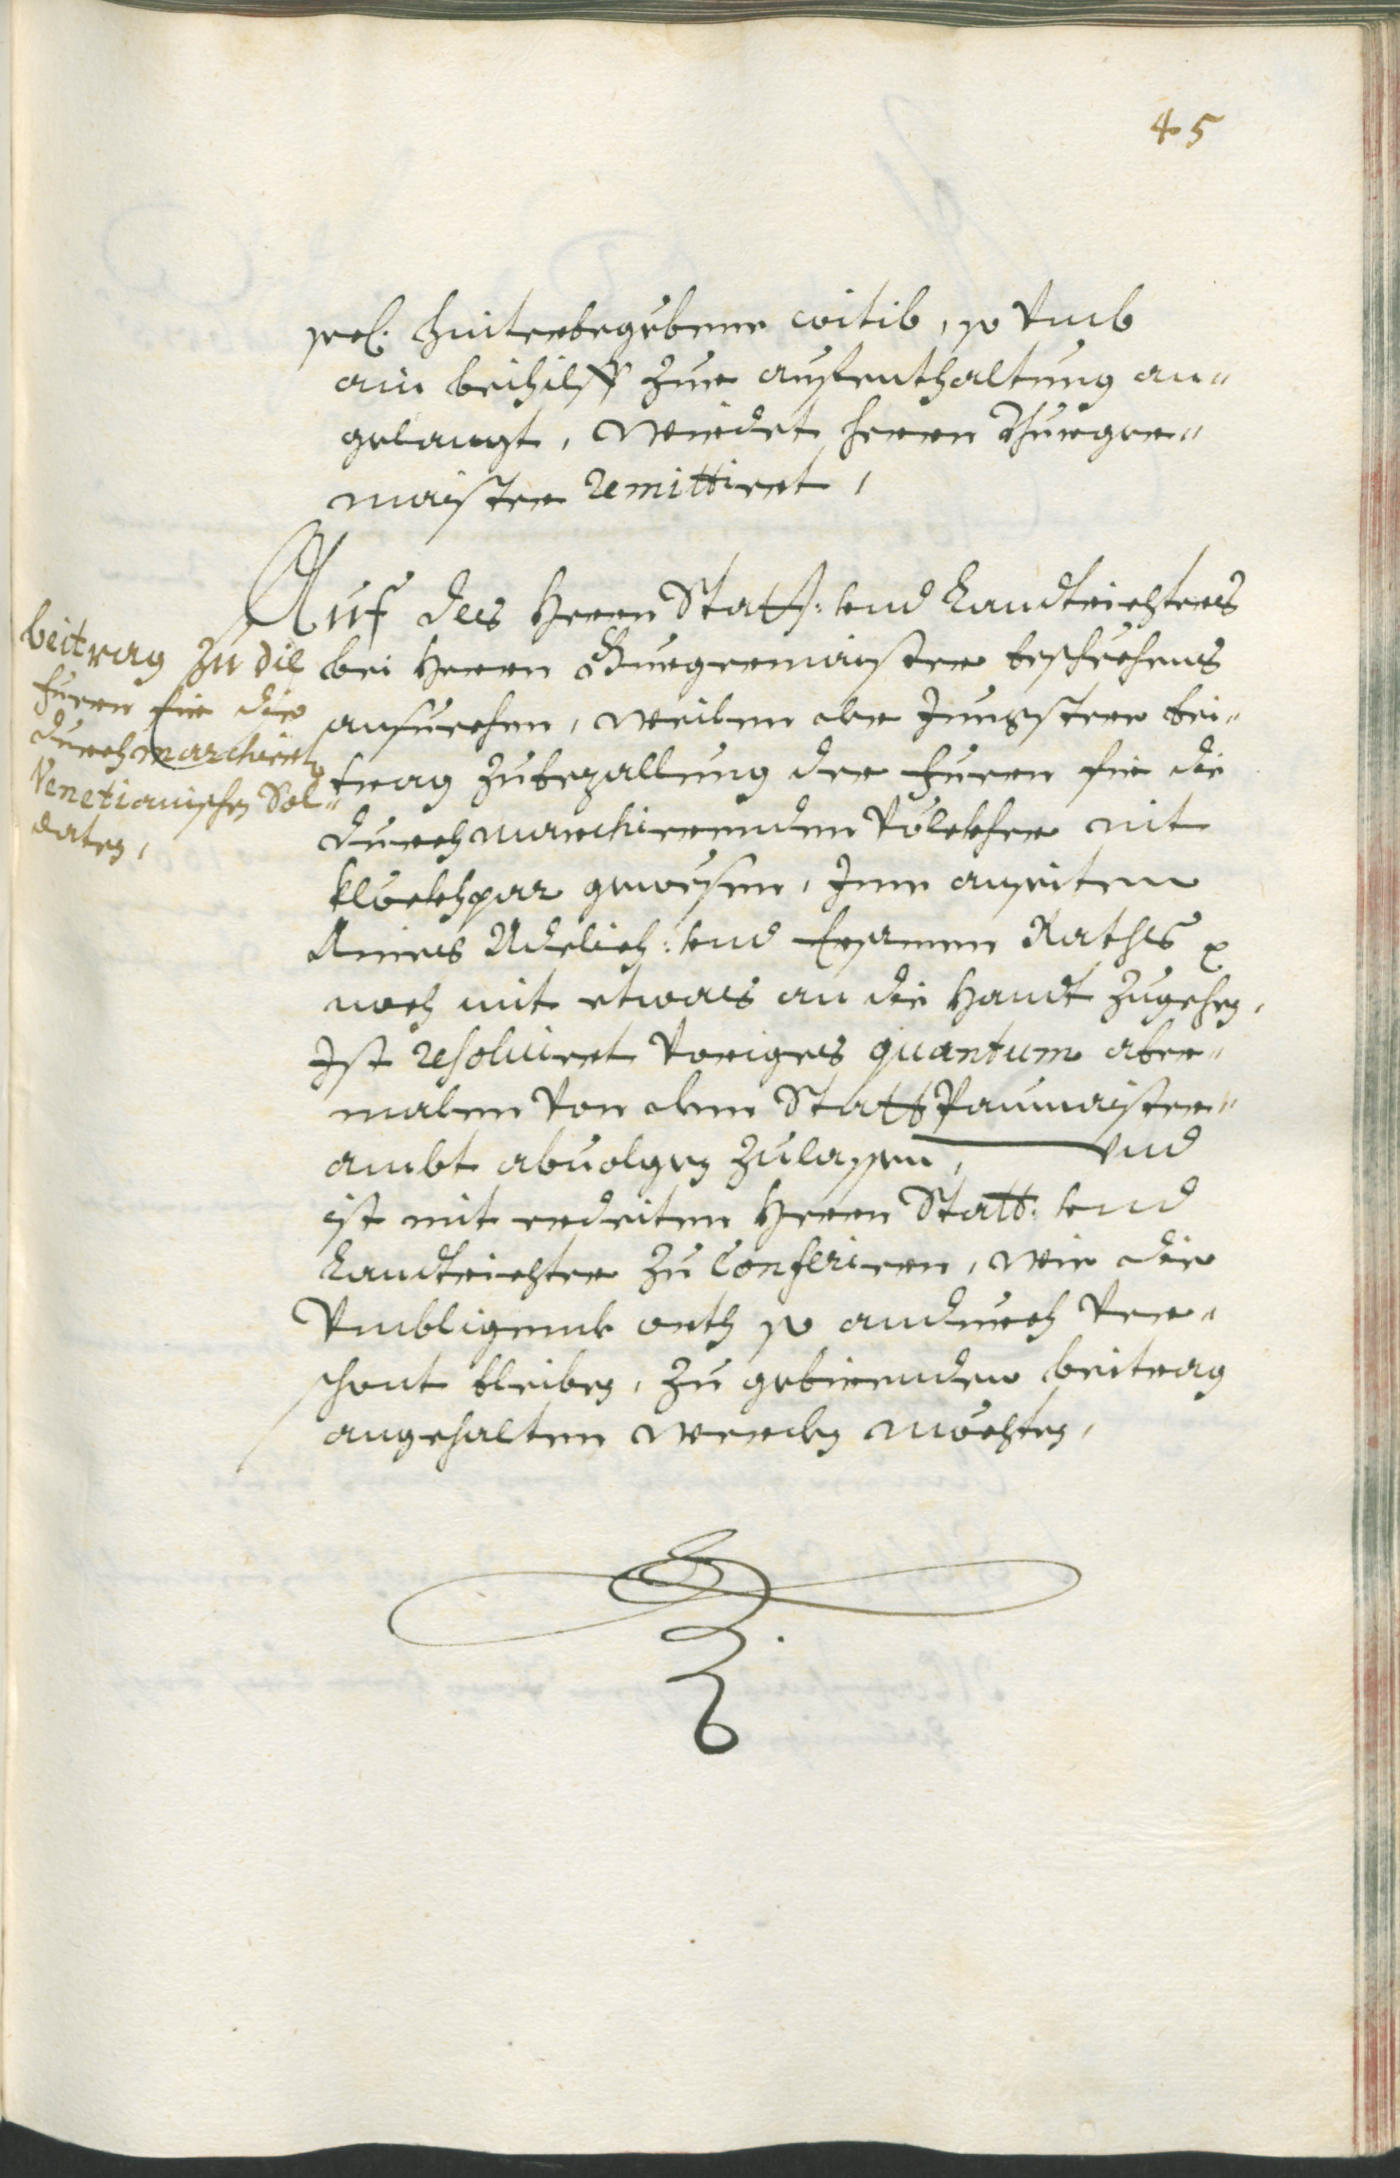 45
seel. hinterbegebene witib, so vmb
ain beihilff zur aufenthaltung an„
gelangt, wirdet herrn Burger„
maister remittiert,
Auf des Herrn Statt: vnd Landtrichters
bei Herrn Burgermaister beschechens
ansuechen, weilen der Jungstere bei„
trag zubezallung der fueren für die
durchmarchierenden völckher nit
klöckhpar gewesen, Jme anseiten
Aines Adelich: vnd Ersamen Rathes
noch mit etwas an die Handt zugehen,
Ist resoluiert voriges quantum aber„
malen von dem Statt Paumaister„
ambt abuolgen zulassen, vnd
ist mit erdeiten Herrn Statt: vnd
Landtrichter zu Conferieren, wie die
vmbligende orth so andurch ver„
schont bleiben, zu gebirenden beitrag
angehalten werden möchten,
beitrag zu die
fueren für die
durchmarchiert
Venetianischen Sol„
daten,